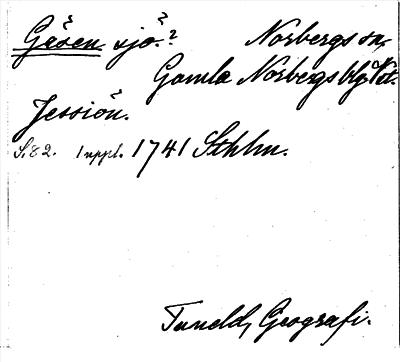 Gåsen sjö? Norbergs sn,
Gamla Norbergs blg Vstl.
Jessiön.
S. 82. 1 uppl. 1741 Sthlm.
Tuneld, Geografi.